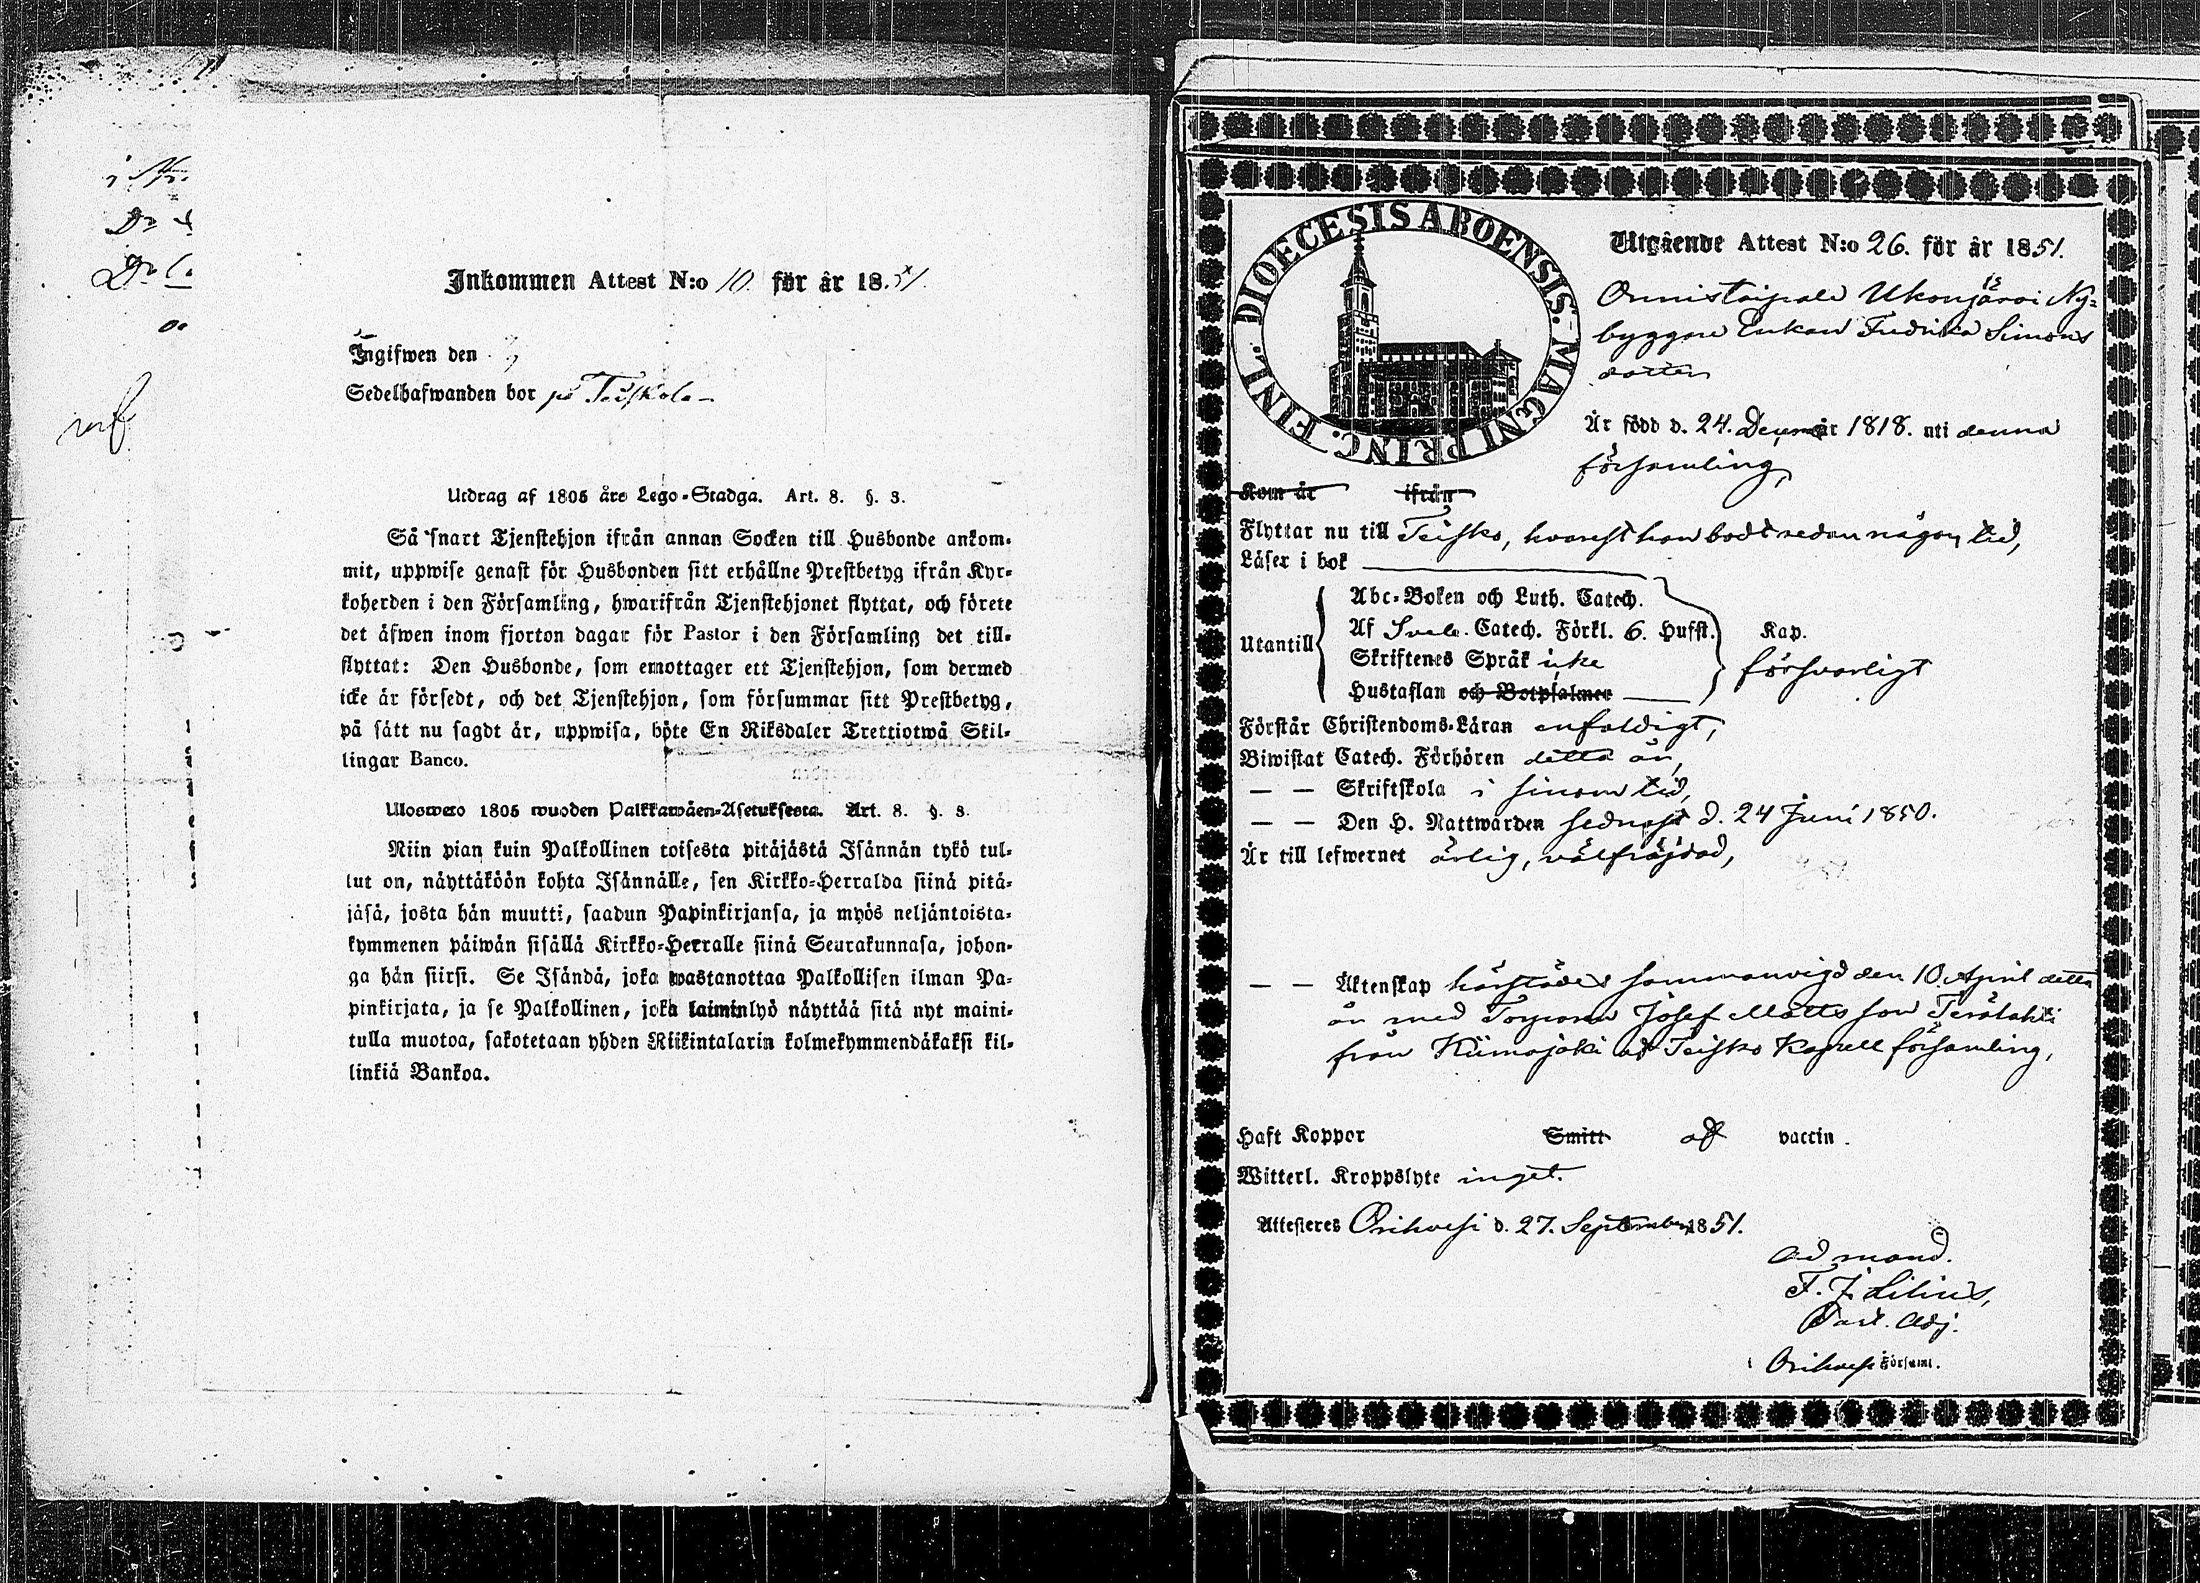 Inkommen Attest N:o 10. för år 1851.
Ingifwen den
Sedelhafwanden bor på Teiskola
Utdrag af 1805 års Lego-Stadga. Art. 8. §. 3.
Så snart Tjenstehjon ifrån annan Socken till Husbonde ankom-
mit, uppwise genast för Husbonden sitt erhållne Prestbetyg ifrån Kyr-
koherden i den Församling, hwarifrån Tjenstehjonet flyttat, och förete
det äfwen inom fjorton dagar för Pastor i den Församling det till-
flyttat: Den Husbonde, som emottager ett Tjenstehjon, som dermed
icke är försedt, och det Tjenstehjon, som försummar sitt Prestbetyg,
på sätt nu sagdt är, uppwisa, böte En Riksdaler Trettiotwå Skil-
lingar Banco.
Ulosweto 1805 wuoden Palkkawäen-Asetuksesta. Art. 8. §. 3.
Niin pian kuin Palkollinen toisesta pitäjästä Isännän tykö tul-
lut on, näyttäköön kohta Isännälle, sen Kirkko-Herralda siinä pitä-
jäsä, josta hän muutti, saadun Papinkirjansa, ja myös neljäntoista-
kymmenen päiwän sisällä Kirkko-Herralle siinä Seurakunnasa, johon-
ga hän siirsi. Se Isändä, joka wastanottaa Palkollisen ilman Pa-
pinkirjata, ja se Palkollinen, joka laiminlyö näyttää sitä nyt maini-
tulla muotoa, sakotetaan yhden Riikintalarin kolmekymmendäkaksi kil-
linkiä Bankoa.
DIOECESIS ABOENSIS. MAGNI PRINC. FINL.
Utgående Attest N:o 26. för år 1851.
Onnistaipale Ukonjärvi Ny-
byggare Enkan Fredrika Simons
dotter
Är född d. 24. Decemb år 1818. uti denna
församling,
Kom år ifrån
Flyttar nu till Teisko, hvarest hon bodt redan någon tid,
Läser i bok
Utantill
Abc-Boken och Luth. Catech.
Af Sveb. Catech. Förkl. 6. Hufst. Kap.
Skriftenes Språk icke
försvarligt
Hustaflan och Botpsalmer
Förstår Christendoms-Läran enfaldigt,
Biwistat Catech. Förhören detta år,
— — Skriftskola i sinom tid,
— — Den H. Nattwarden sednast d. 24 Juni 1850.
Är till lefwernet ärlig, välfräjdad,
— — Äktenskap härstädes sammanvigd den 10 April detta
år med Torparen Josef Mattsson Terälahti
från Kiimajoki af Teisko Kapell församling,
Haft Koppor Smitt af vaccin.
Witterl. Kroppslyte inget.
Attesteres Orihvesi d. 27. September 1851.
Ad mand.
F. J. Lilius,
Past. Adj.
i Orihvesi Församl.